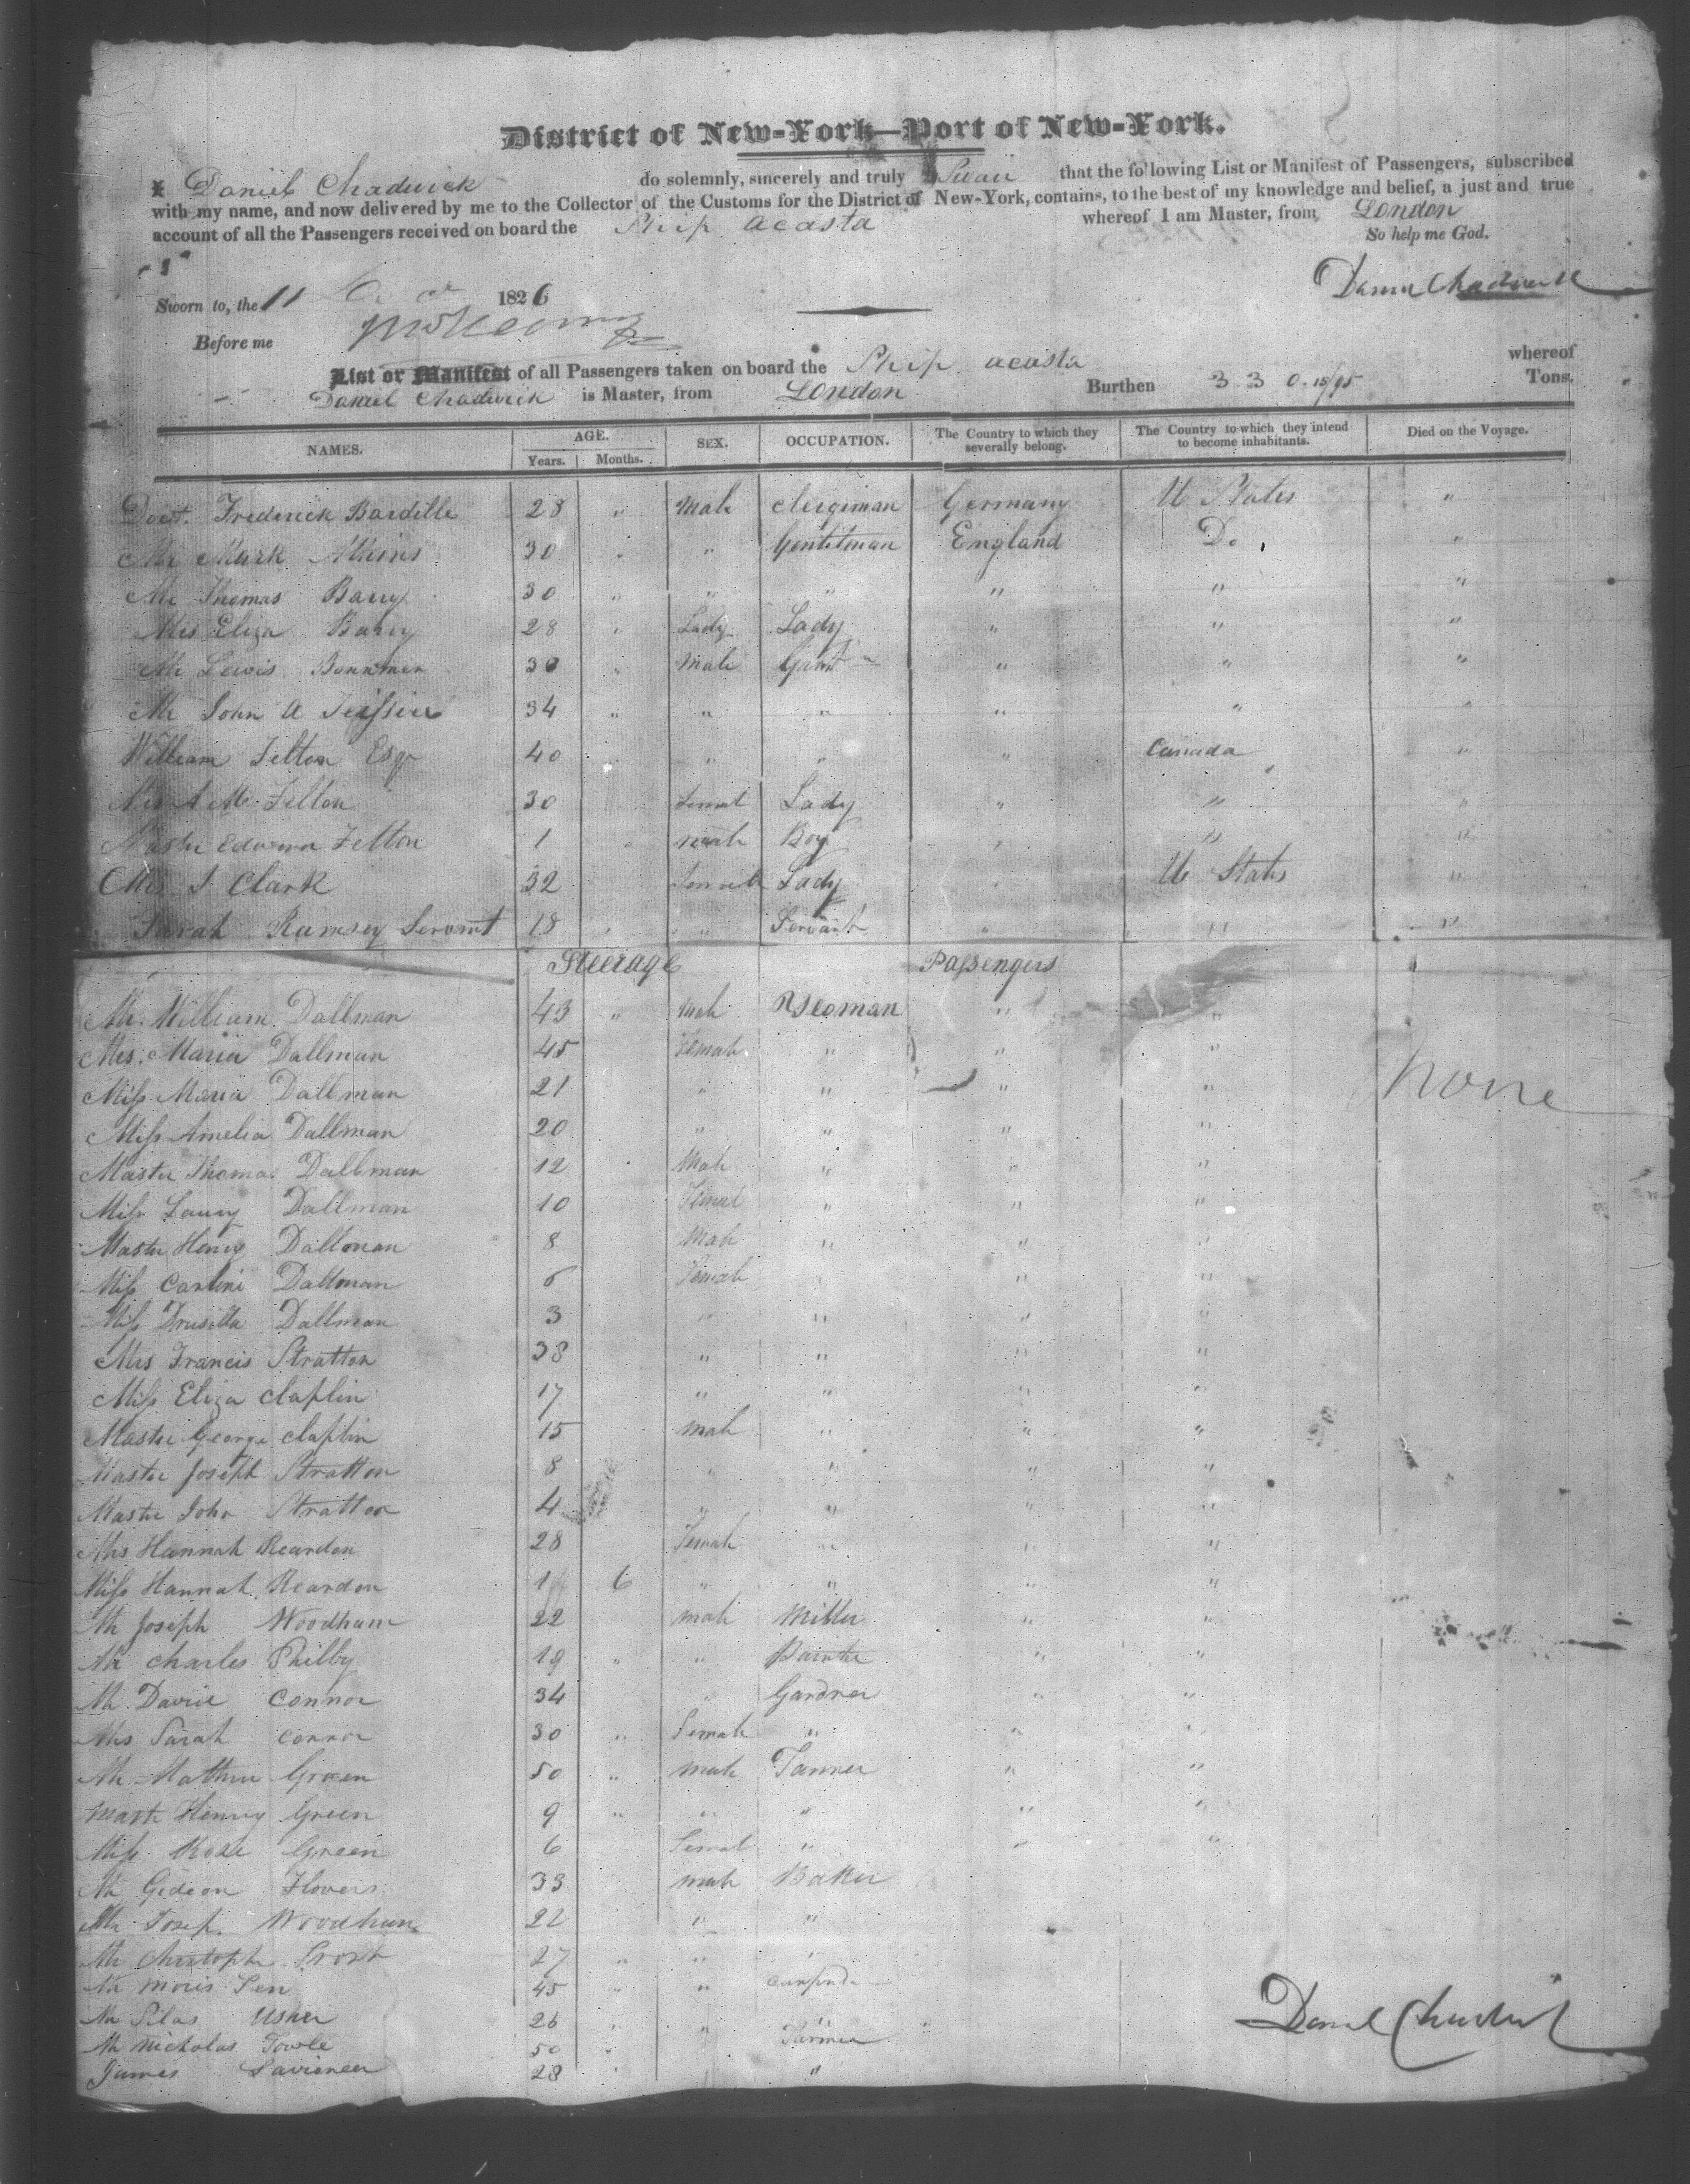 District of New-York—Port of New-York.
I Daniel Chadwick do solemnly, sincerely and truly Swear that the following List or Manifest of Passengers, subscribed
with my name, and now delivered by me to the Collector of the Customs for the District of New-York, contains, to the best of my knowledge and belief, a just and true
account of all the Passengers received on board the Ship Acasta whereof I am Master, from London
So help me God.
Sworn to, the 11 1826
Daniel Chadwick
Before me
List or Manifest of all Passengers taken on board the Ship Acasta whereof
Daniel Chadwick is Master, from London Burthen 330 15/95 Tons.
NAMES. AGE. Years. Months. SEX. OCCUPATION. The Country to which they severally belong. The Country to which they intend to become inhabitants. Died on the Voyage.
Doct. Frederick Bardille 28 " Male Clergiman Germany U States "
Mr Mark Atkins 30 " " Gentleman England Do "
Mr Thomas Barry 30 " " " " " "
Mrs Eliza Barry 28 " Lady Lady " " "
Mr Lewis 30 " Male Gent " " "
Mr John A 34 " " " " " "
William Felton Esqr 40 " " " Canada "
Mrs A M Felton 30 Femal Lady " " "
Master Edward Felton 1 " male Boy " " "
Mrs J Clark 32 Female Lady " U States "
Sarah Ramsey Servant 18 " " Servant " " "
Steerage Passengers
Mr. William Dallman 43 " Male Yeoman " "
Mrs. Maria Dallman 45 Female " " "
Miss Maria Dallman 21 " " " " None
Miss Amelia Dallman 20 " " " "
Master Thomas Dallman 12 Male " " "
Miss Dallman 10 Femal " " "
Master Henry Dallman 8 Male " " "
Miss Carline Dallman 6 Female " " "
Miss Drusilla Dallman 3 " " " "
Mrs Francis Stratton 38 " " " "
Miss Eliza Claplin 17 " " " "
Master George Claplin 15 male " " "
Master Joseph Stratton 8 " " " "
Master John Stratton 4 " " " "
Mrs Hannah Reardon 28 Female " " "
Miss Hannah Reardon 1 6 " " " "
Mr Joseph Woodham 22 male Miller " "
Mr Charles Philby 19 " " Painter " "
Mr David Connor 34 " Gardner " "
Mrs Sarah Connor 30 " Female " " "
Mr Mathew Green 50 " male Tanner " "
Mastr Henry Green 9 " " " " "
Miss Rose Green 6 Femal " " "
Mr Gideon Flovers 33 male Baker
Mr Josep. Woodham 22 " "
Mr Christopher Frost 27 " " "
Mr Moris 45 " "
Mr Silas Usher 26 " " "
Mr Nicholas Towle 50 " Farmer
James 28 " "
Daniel Chadwick